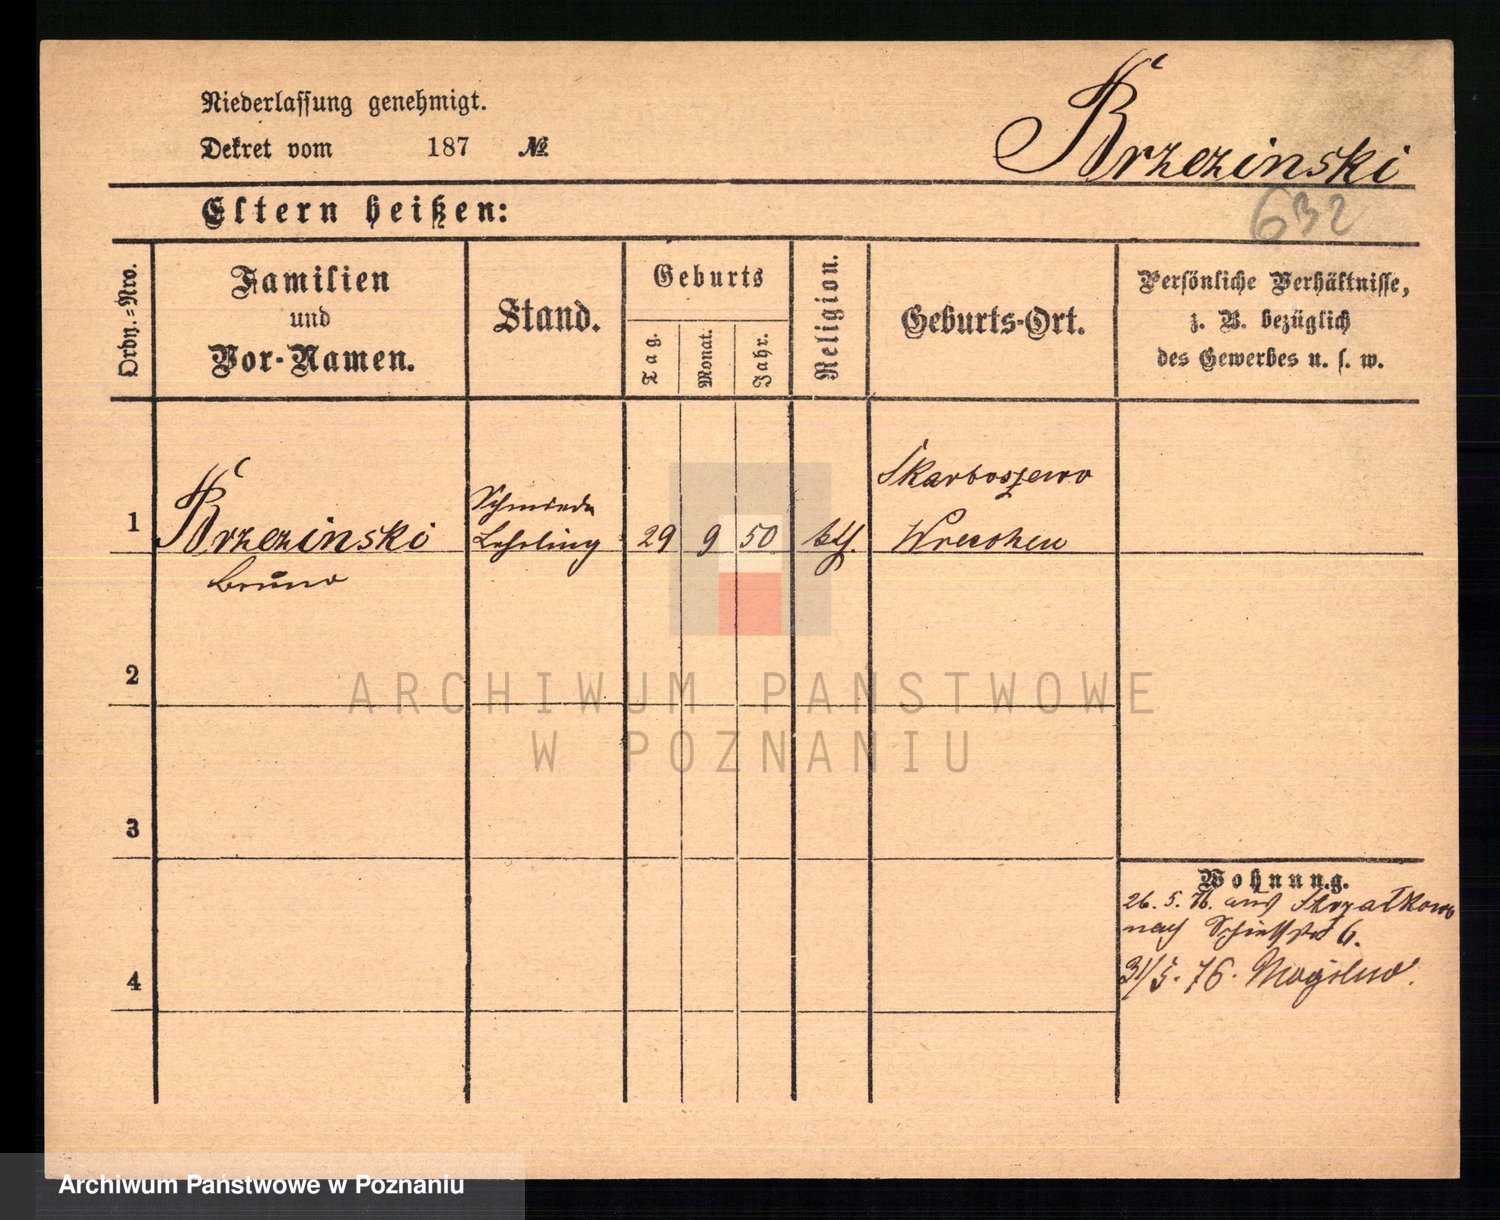 Niederlassung genehmigt.
Dekret vom 187 №
Brzezinski
632
Eltern heißen:
Ordn.=Nro.
Familien
und
Vor-Namen.
Stand.
Geburts
Tag.
Monat.
Jahr.
Religion.
Geburts-Ort.
Persönliche Verhältnisse,
z. B. bezüglich
des Gewerbes u. s. w.
1
Brzezinski
Bruno
Schmiede
Lehrling
29 9 50
kth.
Skarboszewo
Wreschen
2
3
4
Wohnung.
26. 5. 76. aus Strzałkowo
nach Schießstr 6.
31/5. 76. Mogilno.
ARCHIWUM PAŃSTWOWE
W POZNANIU
Archiwum Państwowe w Poznaniu